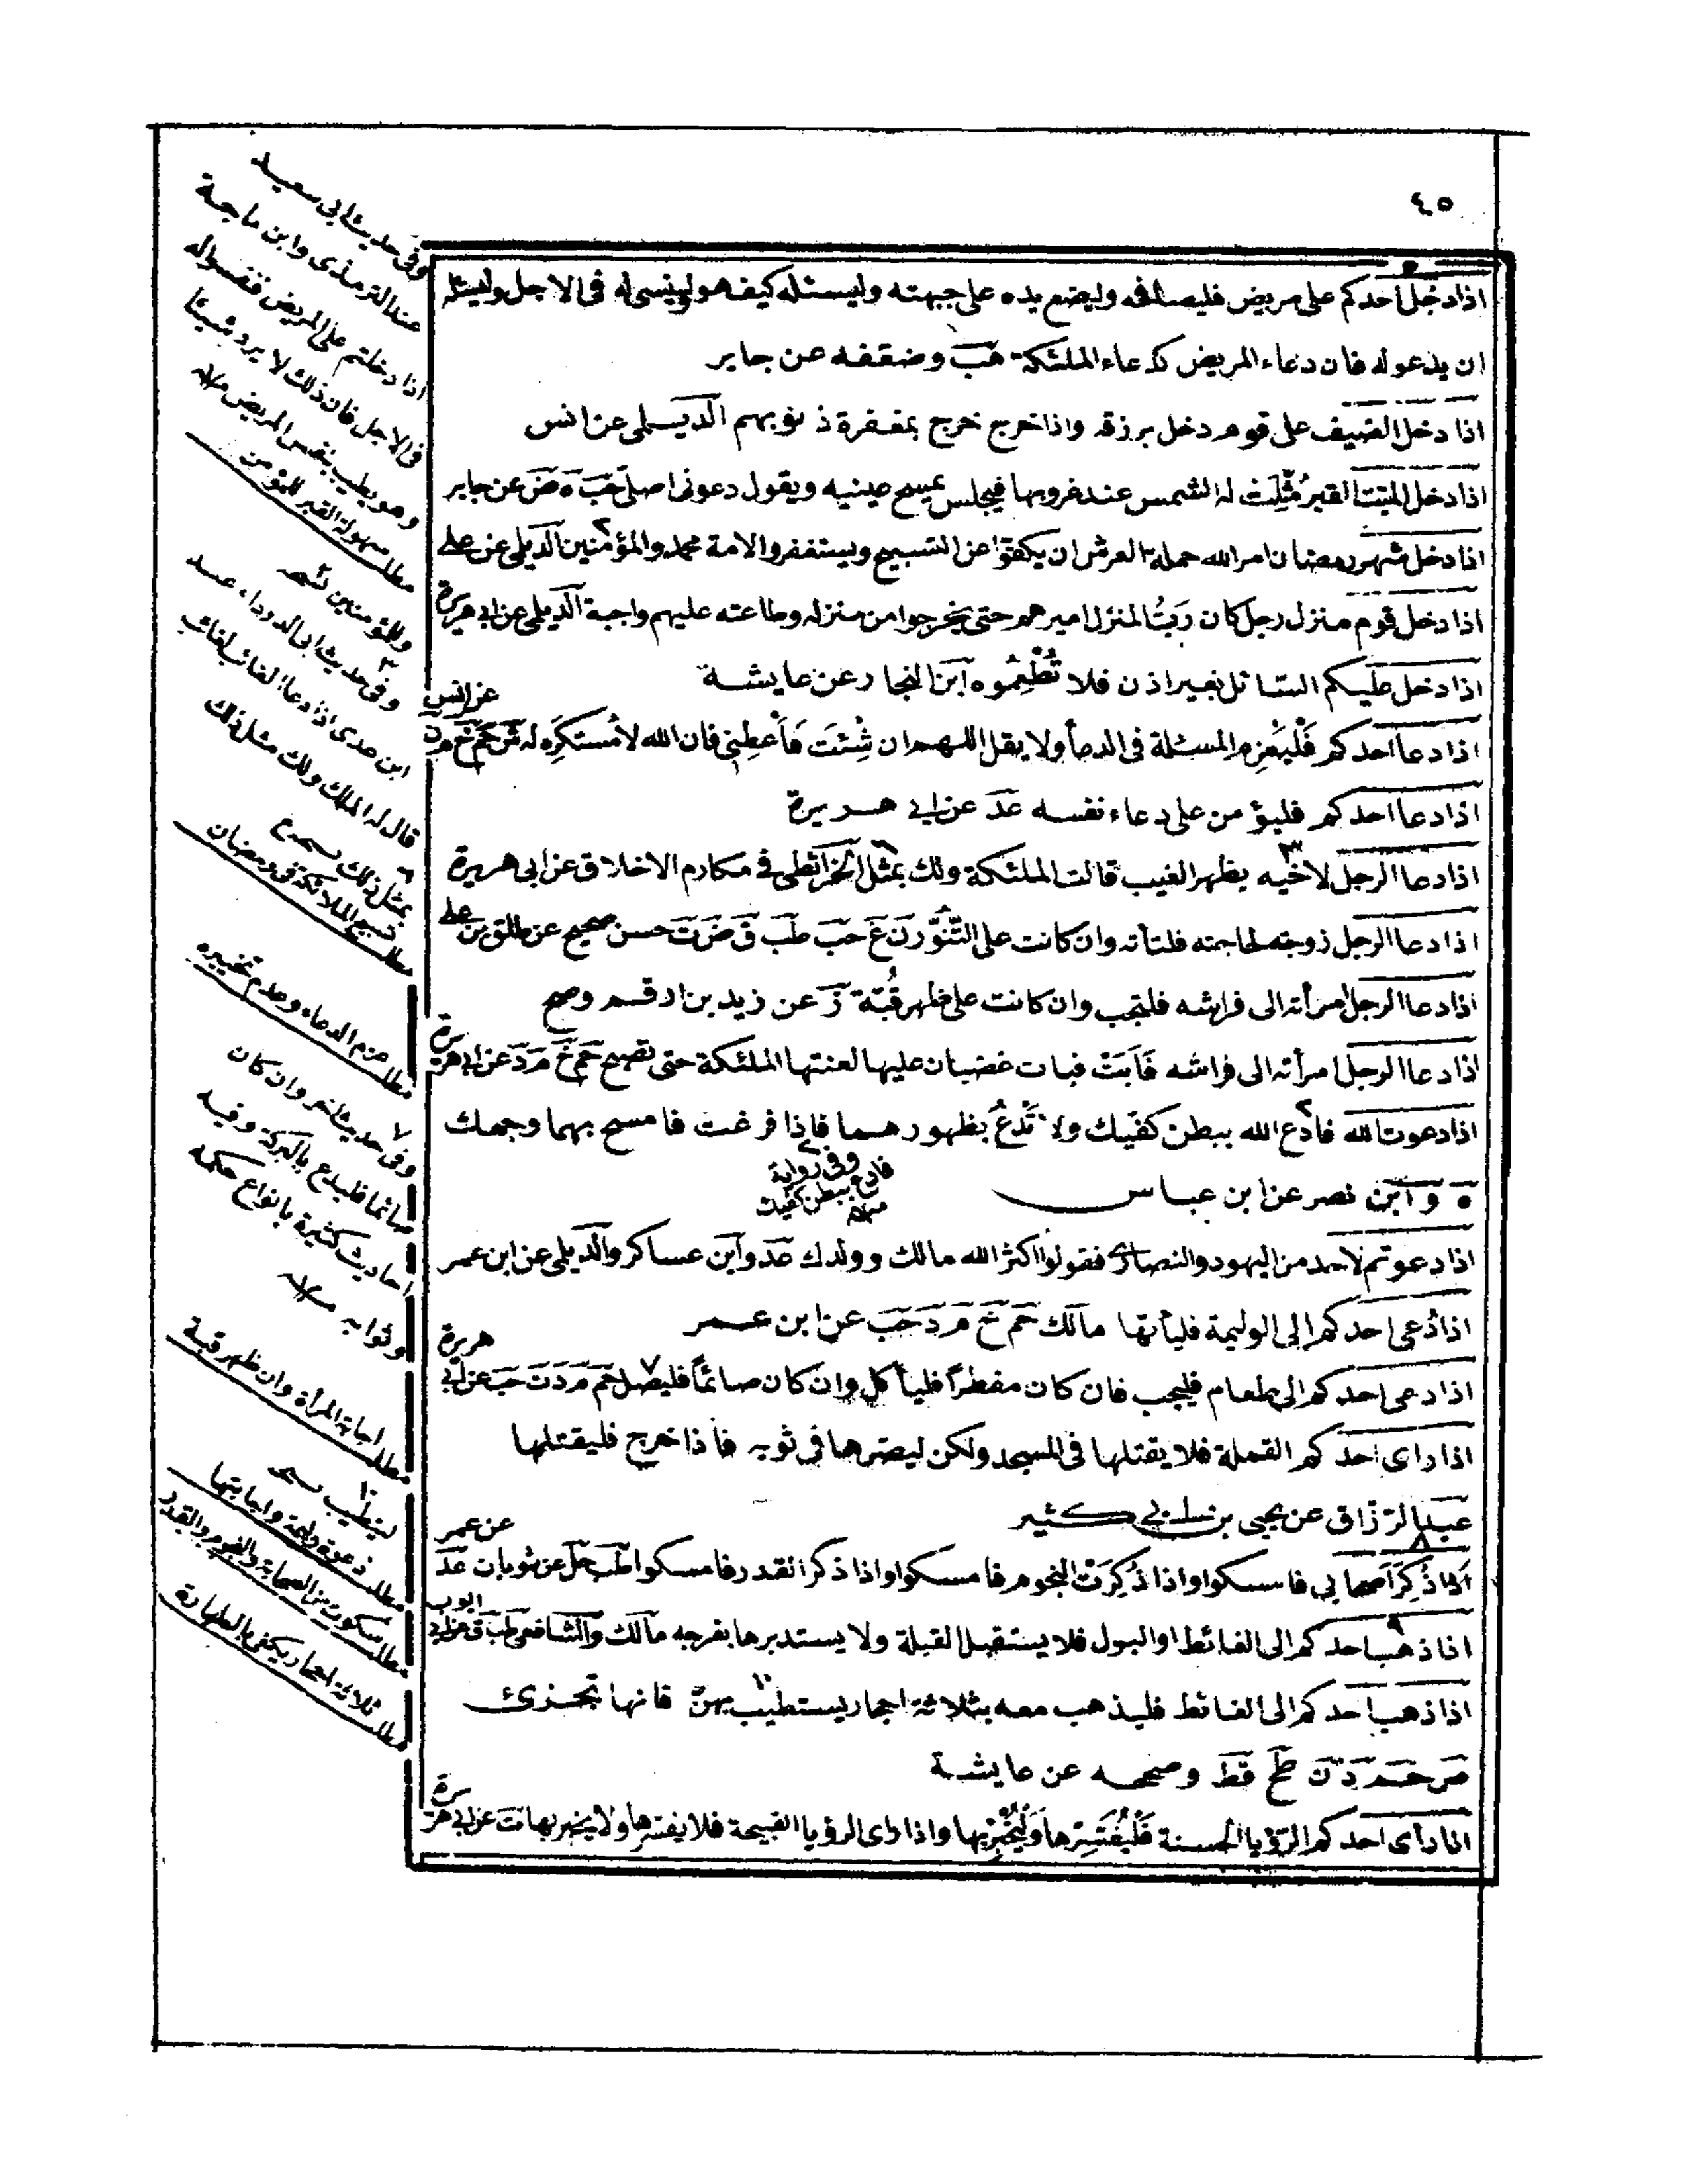 ٤٥
اذا دخل احدكم على مريض فليصافحه وليضع يده على جبهته وليسئله كيف هو ولينسئ له فى الاجل وليسئله
ان يدعو له فان دعاء المريض كدعاء الملئكة هب وضعفه عن جابر
اذا دخل الضيف على قوم دخل برزقه واذا خرج خرج بمغفرة ذنوبهم الديلمى عن انس
اذا دخل الميت القبر مُثِّلَت له الشمس عند غروبها فيجلس يمسح عينيه ويقول دعونى اصلى حب ه ض عن جابر
اذا دخل شهر رمضان امر الله حملة العرش ان يكفوا عن التسبيح ويستغفروا لامة محمد والمؤمنين الديلمى عن على
اذا دخل قوم منزل رجل كان رَبُّ المنزل اميرهم حتى يخرجوا من منزله وطاعته عليهم واجبة الديلمى عن ابى هريرة
اذا دخل عليكم السائل بغير اذن فلا تُطْعِمُوه ابن النجار عن عايشة
اذا دعا احدكم فَلْيَعْزِم المسئلة فى الدعأ ولا يقل اللهم ان شِئْتَ فَاَعْطِنِى فان الله لا مُسْتَكْرِه له ش حم خ م ن عن انس
اذا دعا احدكم فليؤمن على دعاء نفسه عد عن ابى هريرة
اذا دعا الرجل لاخيه بظهر الغيب قالت الملئكة ولك بمثل الخرائطى فى مكارم الاخلاق عن ابى هريرة
اذا دعا الرجل زوجته لحاجته فلتأته وان كانت على التَّنُّور ن غ حب طب ق ض ت حسن صحيح عن طلق بن على
اذا دعا الرجل امرأته الى فراشه فلتجب وان كانت على ظهر قُبَّة ز عن زيد بن ارقم وصح
اذا دعا الرجل امرأته الى فراشه فَاَبَتْ فبات غضبان عليها لعنتها الملئكة حتى تصبح حم خ م د عن ابى هريرة
اذا دعوت الله فادع الله ببطن كفيك ولا تَدْعُ بظهورهما فاذا فرغت فامسح بهما وجهك
وفى رواية فادع ببطن كفيك منه
ه وابن نصر عن ابن عباس
اذا دعوتم لاحد من اليهود والنصارى فقولوا اكثر الله مالك وولدك عد وابن عساكر والديلمى عن ابن عمر
اذا دُعى احدكم الى الوليمة فليأتها مالك حم خ م د حب عن ابن عمر
اذا دعى احدكم الى طعام فليجب فان كان مفطراً فليأكل وان كان صائماً فليصل حم م د ت حب عن ابى هريرة
اذا راى احدكم القملة فلا يقتلها فى المسجد ولكن ليصرها فى ثوبه فاذا خرج فليقتلها
عبد الرزاق عن يحيى بن ابى كثير
اذا ذُكِرَ اصحابى فامسكوا واذا ذُكِرَتْ النجوم فامسكوا واذا ذكر القدر فامسكوا طب حل عن ثوبان عد عن عمر
اذا ذهب احدكم الى الغائط او البول فلا يستقبل القبلة ولا يستدبرها بفرجه مالك والشافعى طب ق عن ابى ايوب
اذا ذهب احدكم الى الغائط فليذهب معه بثلاثة احجار يستطيب بهن فانها تجزئ
ص حم د ن طح قط وصححه عن عايشة
اذا رأى احدكم الرؤيا الحسنة فَلْيُفَسِّرها وَلْيُخْبِر بها واذا راى الرؤيا القبيحة فلا يفسرها ولا يخبر بها ت عن ابى هريرة
وفى حديث ابى سعيد
عند الترمذى وابن ماجة
اذا دخلتم على المريض فنفسوا له
فى الاجل فان ذلك لا يرد شيئا
وهو يطيب بنفس المريض منه
مطلب سهولة القبر للمؤمن
وللمؤمنين نسخه
٣ وفى حديث ابى الدرداء عند
ابن عدى اذا دعا الغائب لغائب
قال له الملك ولك مثل ذلك
٦ بمثل ذلك نسخه
مطلب تسبيح الملائكة فى رمضان
مطلب عزم الدعاء وعدم تخييره
٧ وفى حديث اخر وان كان
صائما فليدع بالبركة وفيه
احاديث كثيرة بانواع حكمه
وثوابه منه
مطلب اجابة المرأة وان ظهر قبة
١٠ ليتطيب نسخه
مطلب دعوة وليمة واجابتها
مطلب سكوت من الصحابة والنجوم والقدر
مطلب ثلاثة احجار يكفى بالطهارة